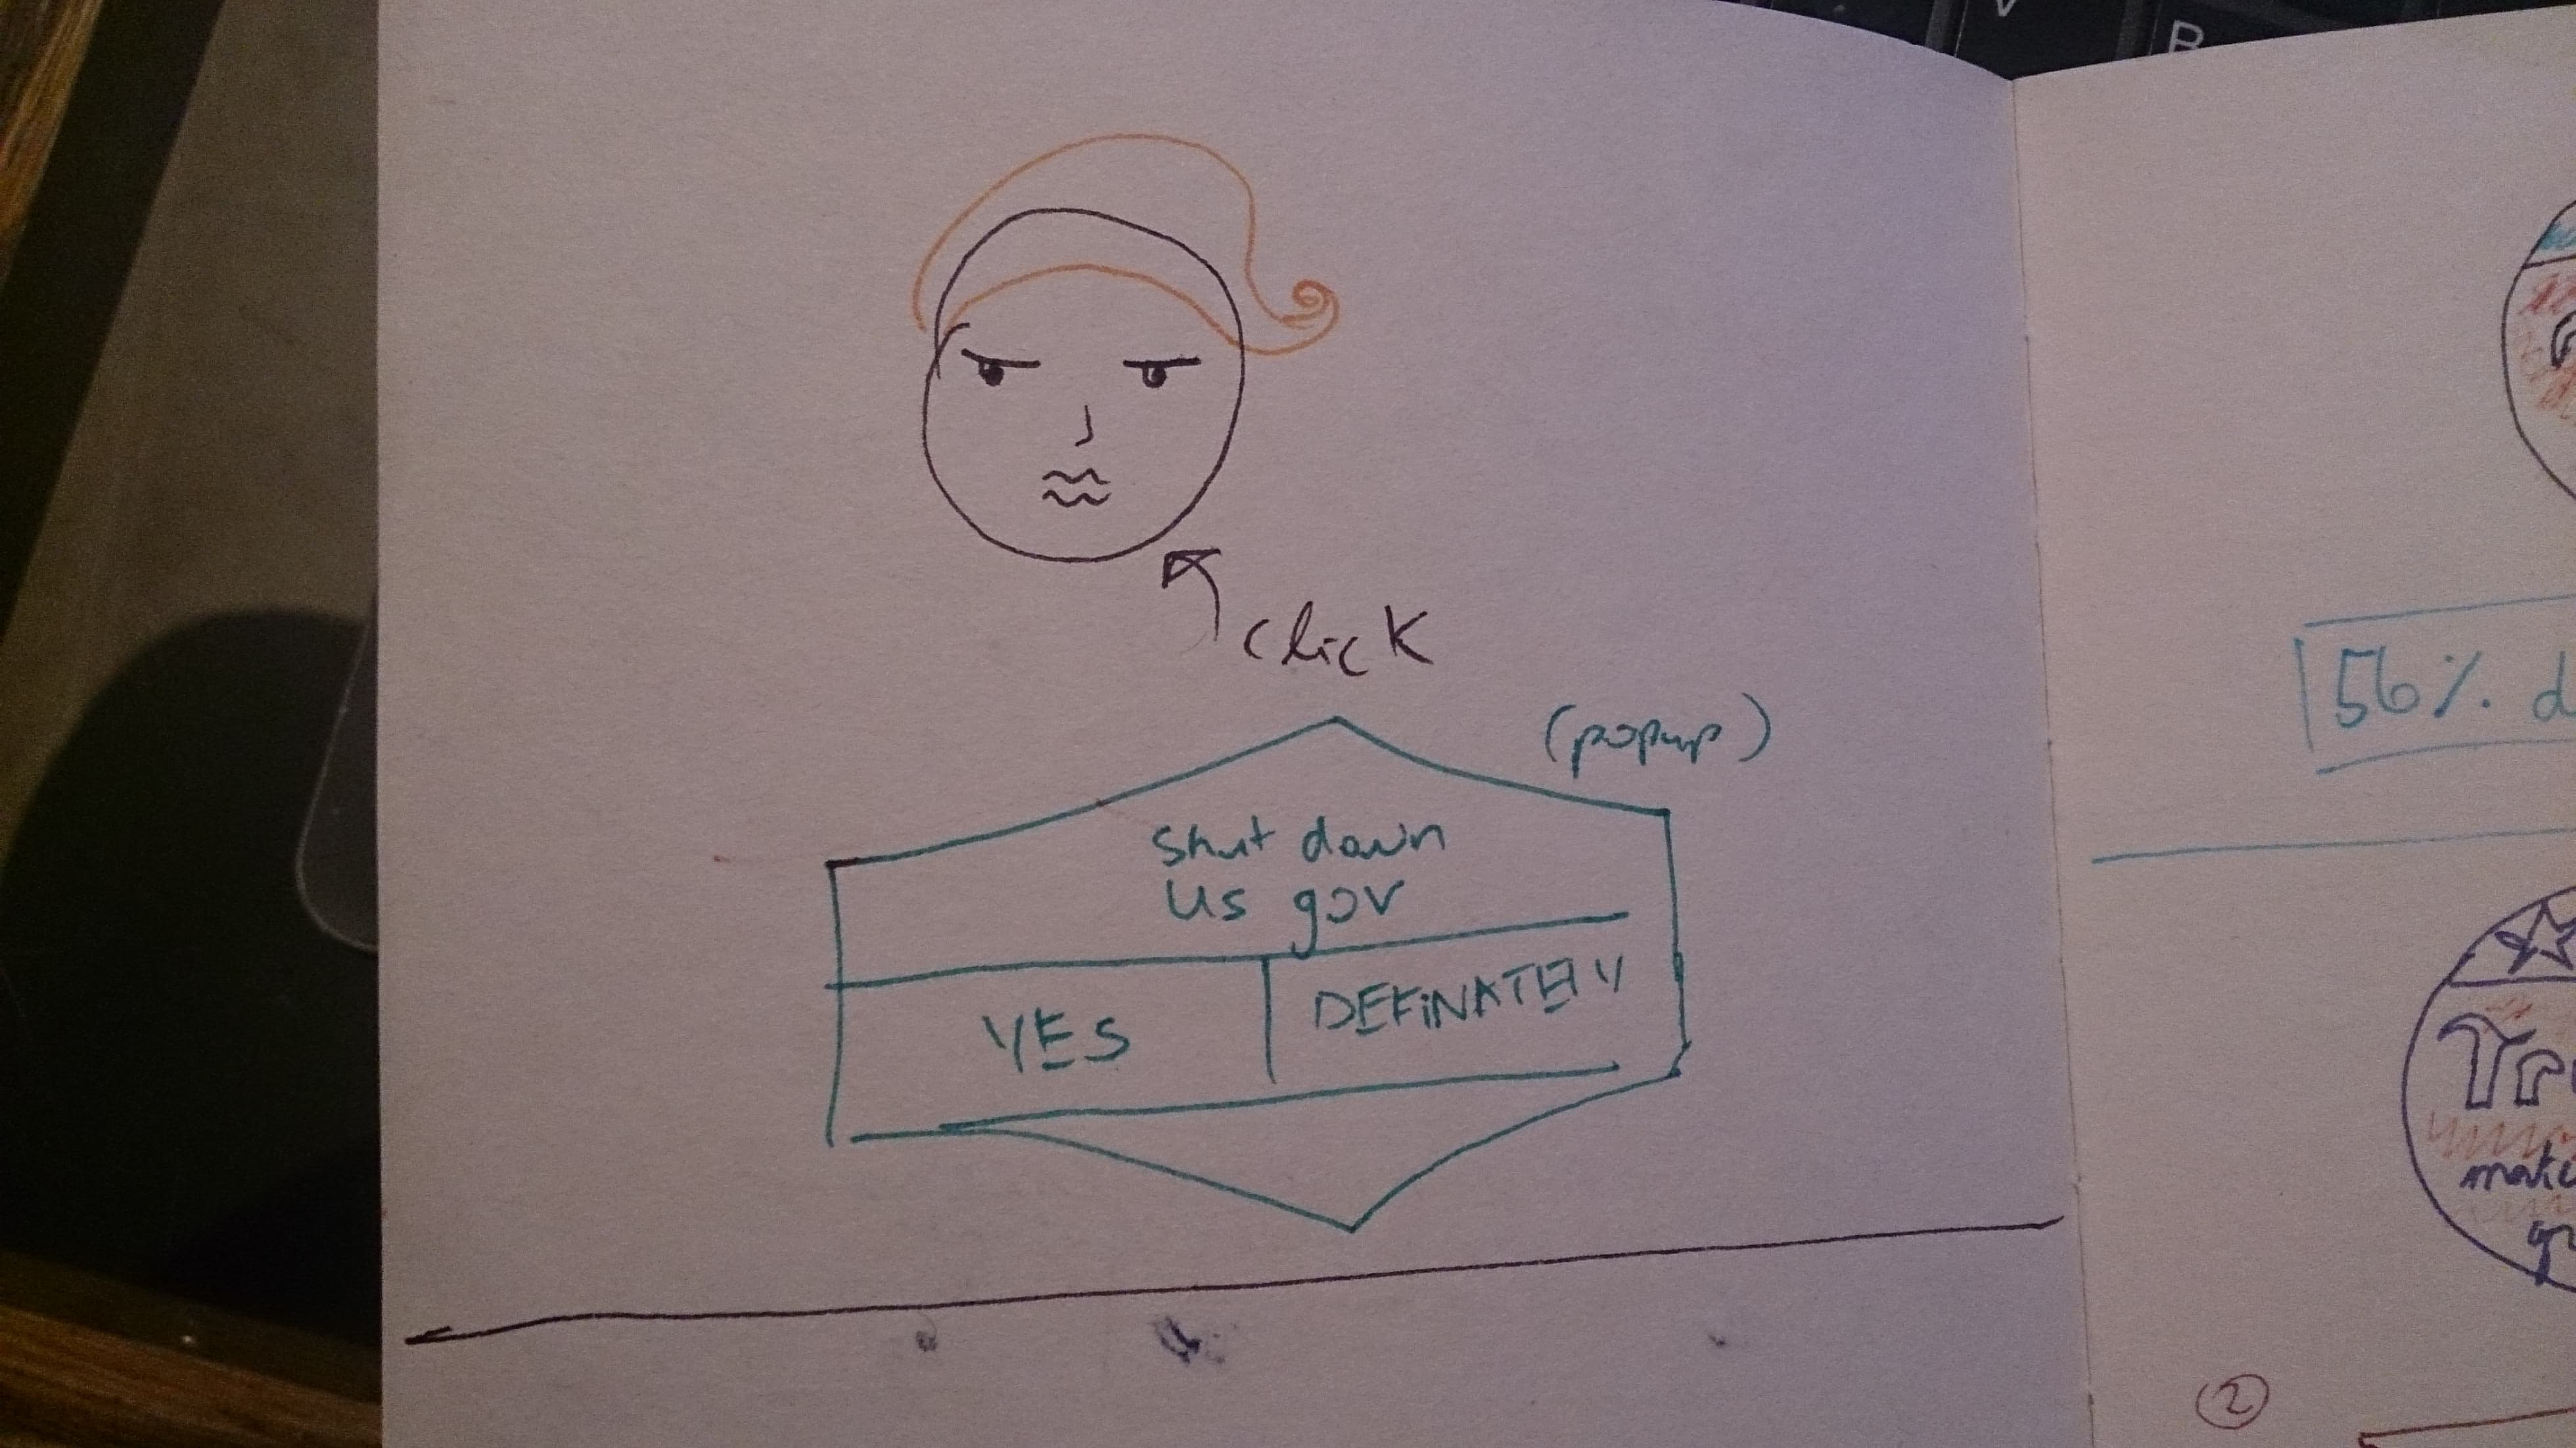 V
B
click
(popup)
Shut down
us gov
YES
DEFINATELY
56%. d
Tr
make
gr
2